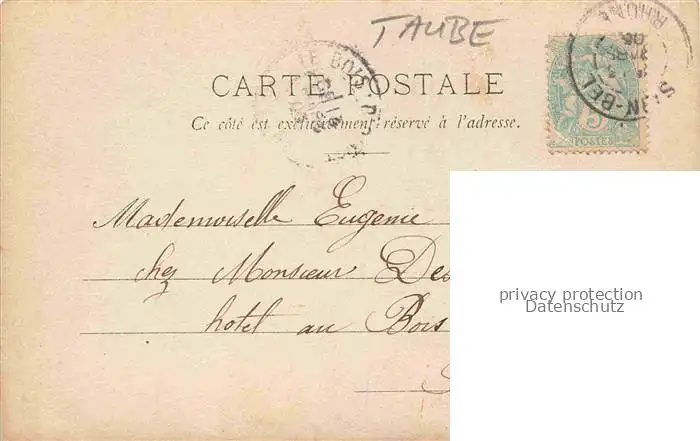 TAUBE
CARTE POSTALE
Ce côté est exclusivement réservé à l'adresse.
5
POSTES
SAIN-BEL
RHONE
LE BOIS-D
Mademoiselle Eugenie
chez Monsieur Des
hotel au Bois
privacy protection
Datenschutz